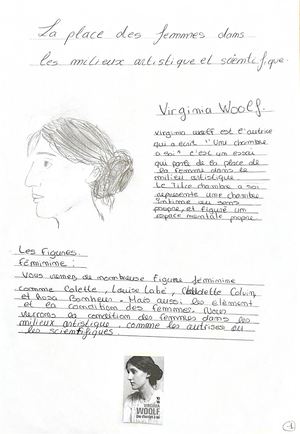 La place des femmes dans
les milieux artistique et scientifique.
Virginia Woolf.
Virginia woolf est l'autrice
qui a ecrit "Une chambre
a soi" c'est un essai
qui parle de la place de
la femme dans le
milieu artistique.
Le Titre chambre a soi
represente une chambre
Intime au sens
propre, et figuré un
espace mentale propre.
Les Figures
féminine:
Vous verrez de nombreuse figure feminine
comme Colette, Louise Labé, Claudette Colvin,
et Rosa Bonheur. Mais aussi les element
et la condition des femmes. Nous
verrons la condition des femmes dans les
milieux artistique, comme les autrises ou
les scientifiques.
VIRGINIA
WOOLF
1